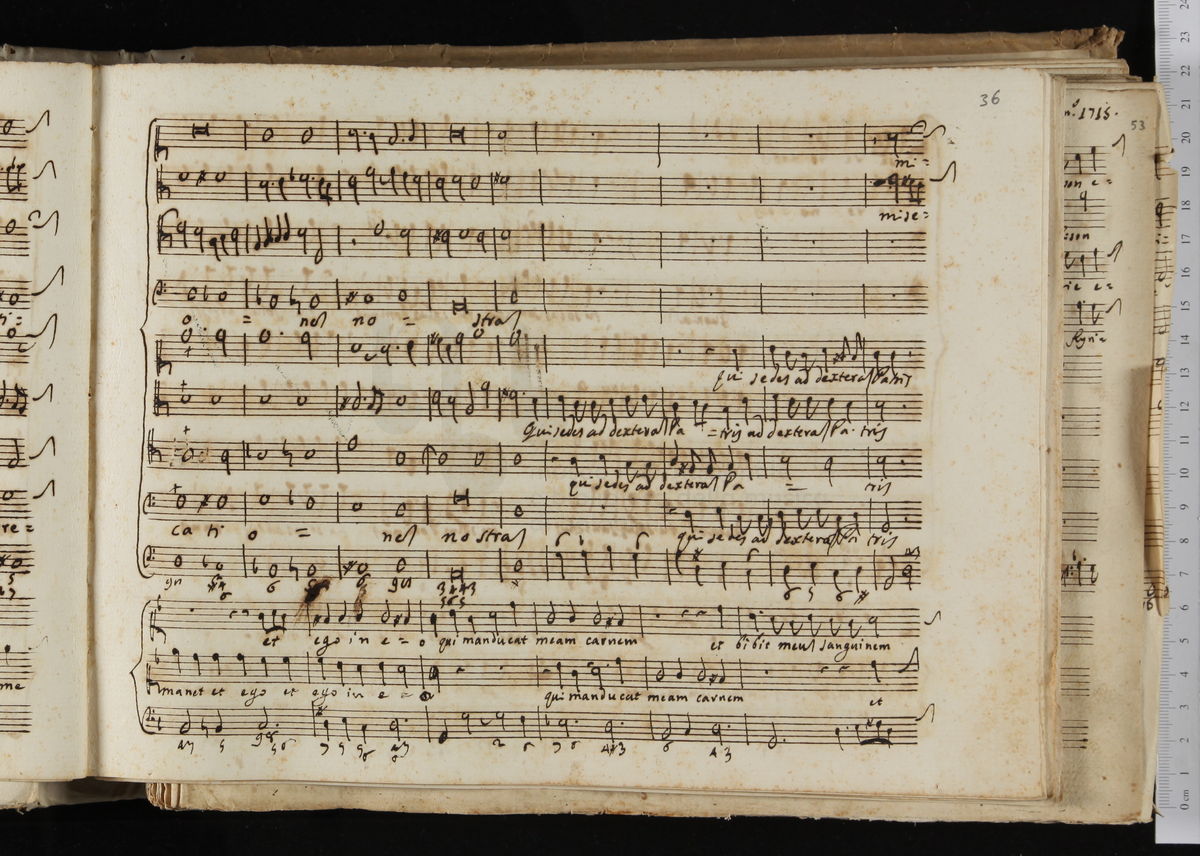 36
mi =
mise =
o = nē no = strā
qui sedes ad dexterā Patris
Qui sedes ad dexterā Pa = tris ad dexterā Pa tris
qui sedes ad dexterā Pa = tris
ca ti o = nē nostrā qui sedes ad dexterā Pa tris
et ego in e = o qui manducat meam carnem et bibit meū sanguinem
manet et ego et ego in e = o qui manducat meam carnem et
re =
me
1715.
53